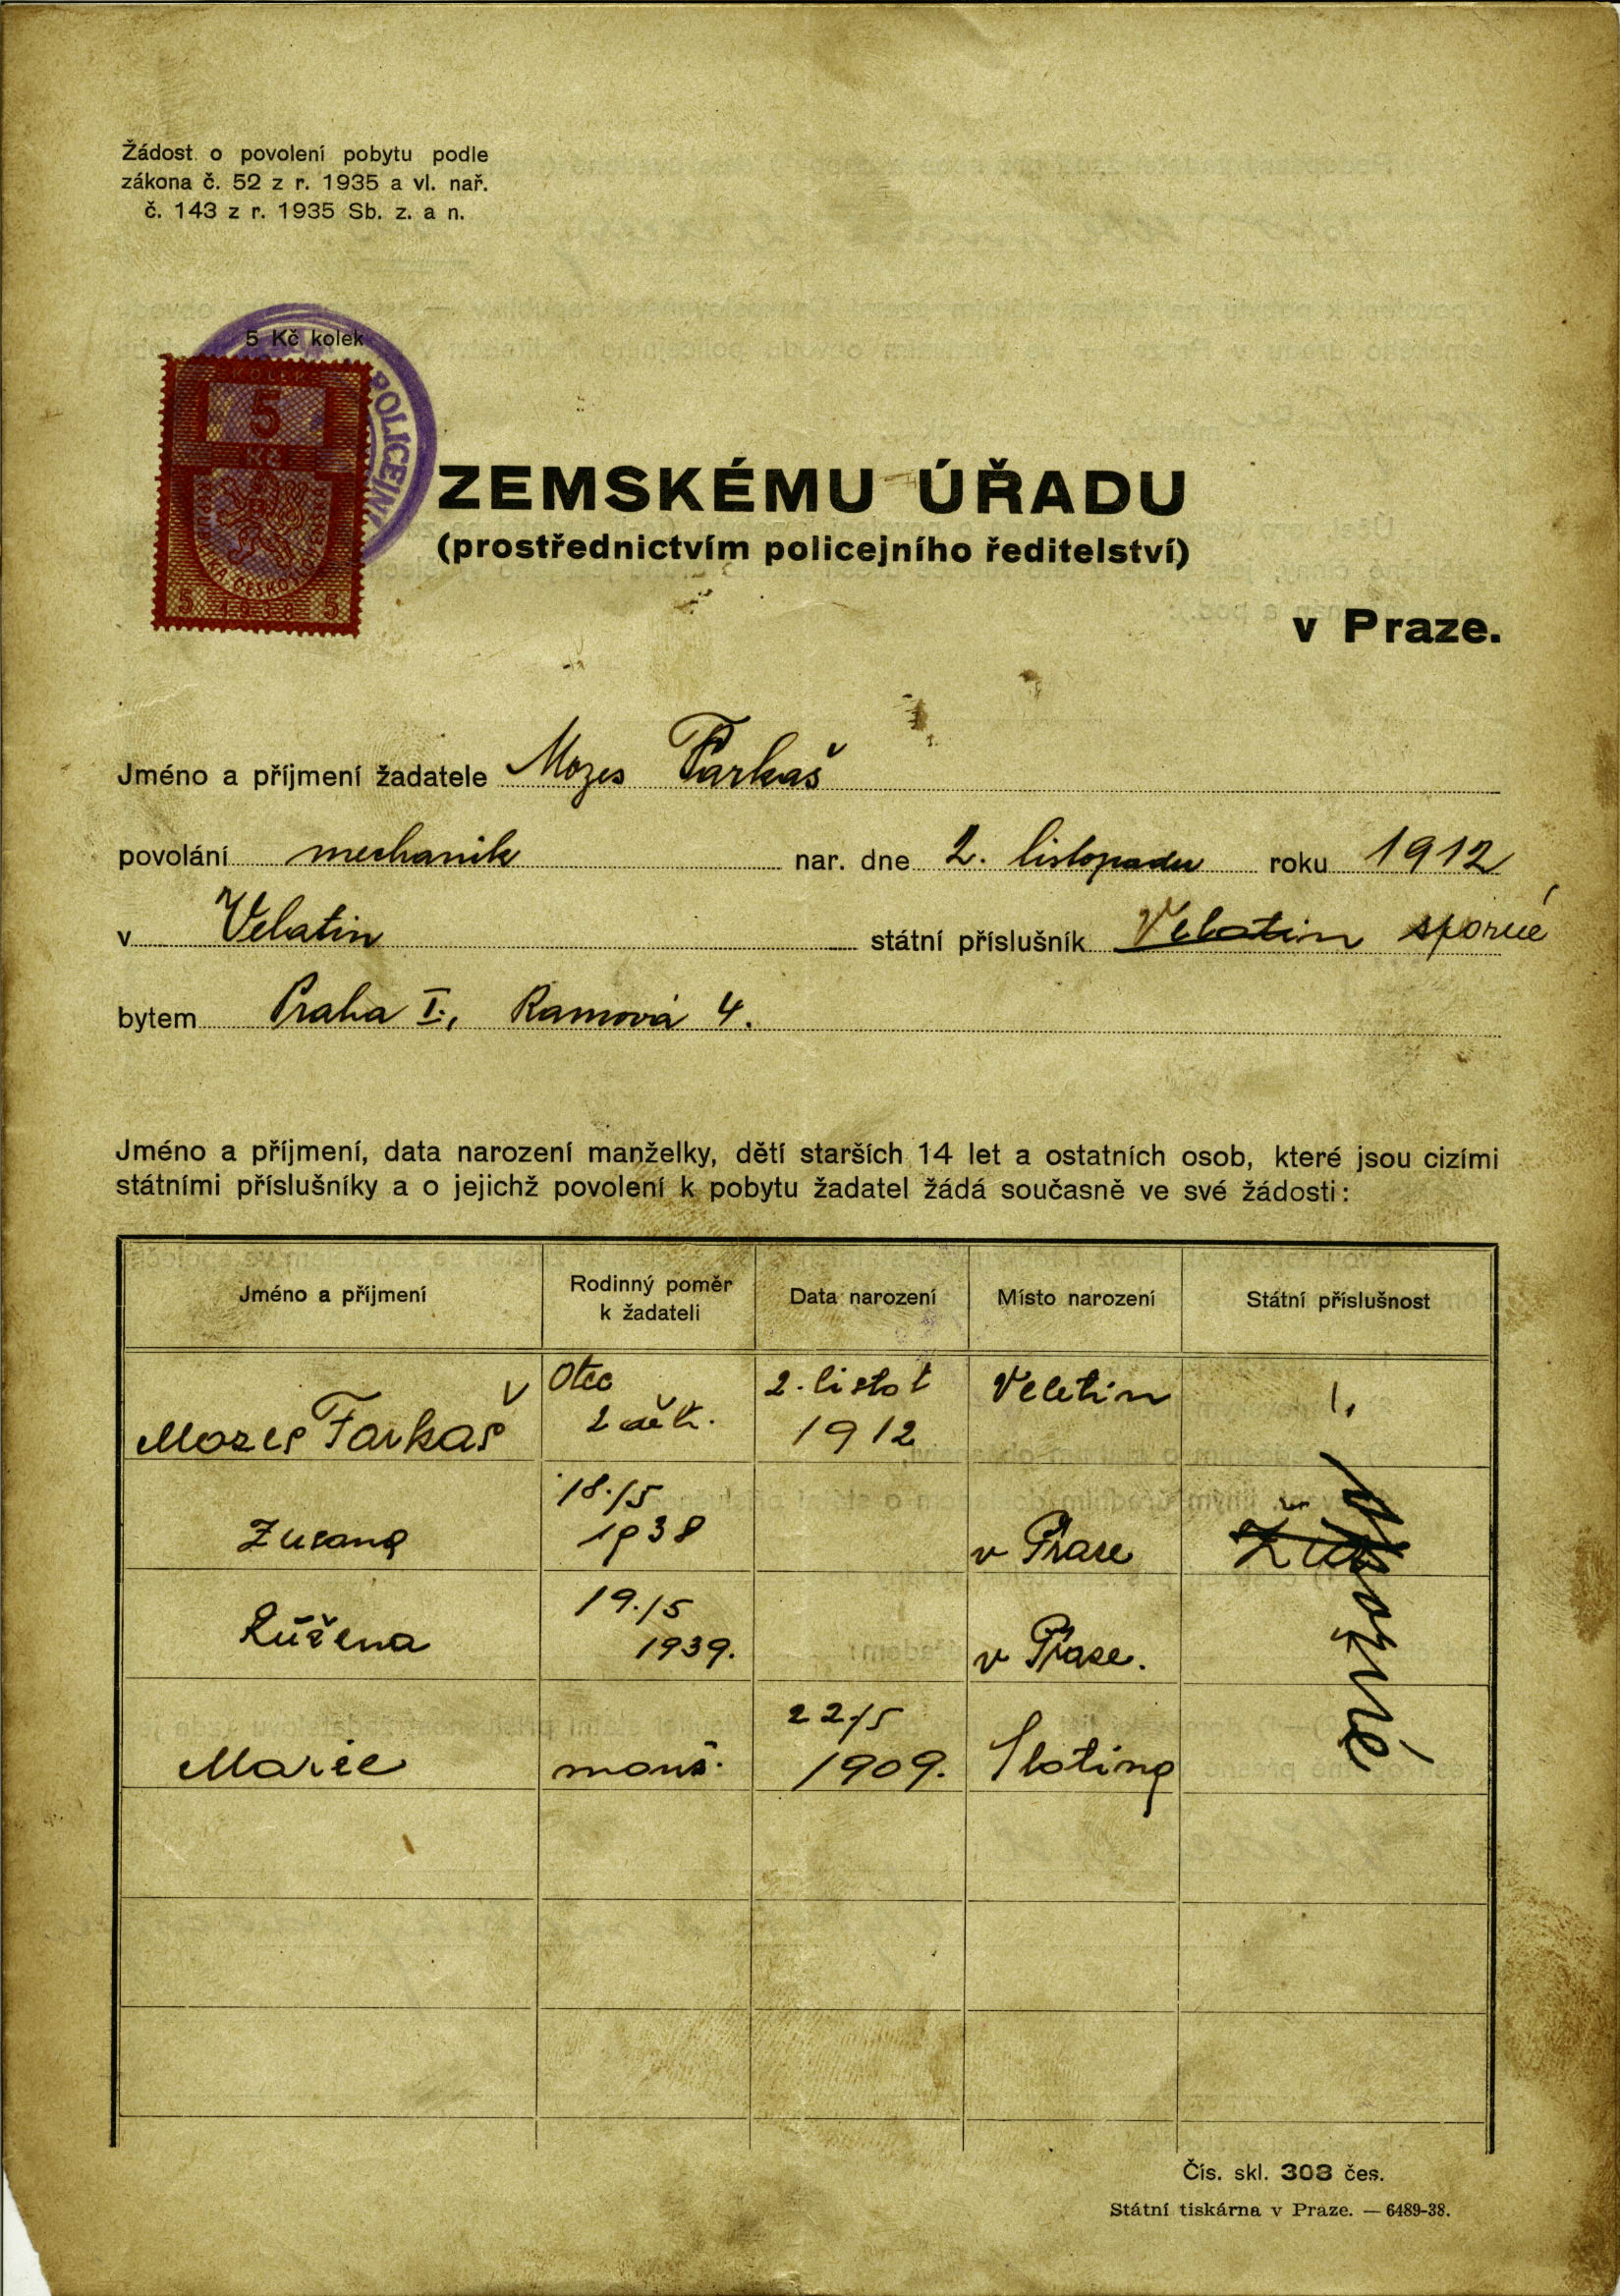 Žádost o povolení pobytu podle
zákona č. 52 z r. 1935 a vl. nař.
č. 143 z r. 1935 Sb. z. a n.
5 Kč kolek
POLICEJNÍ
5
Kč
5 1938 5
ZEMSKÉMU ÚŘADU
(prostřednictvím policejního ředitelství)
v Praze.
Jméno a příjmení žadatele Mozes Farkaš
povolání mechanik nar. dne 2. listopadu roku 1912
v Velatin státní příslušník Velatin sporné
bytem Praha I., Ramová 4.
Jméno a příjmení, data narození manželky, dětí starších 14 let a ostatních osob, které jsou cizími
státními příslušníky a o jejichž povolení k pobytu žadatel žádá současně ve své žádosti:
Jméno a příjmení Rodinný poměr k žadateli Data narození Místo narození Státní příslušnost
Mozes Farkaš Otec 2 dětí. 2. listot 1912 Veletin
Zuzana 18./5 1938 v Praze
Růžena 19./5 1939. v Praze.
Marie manž. 22/5 1909. Slotina
sporné
Čís. skl. 308 čes.
Státní tiskárna v Praze. — 6489-38.